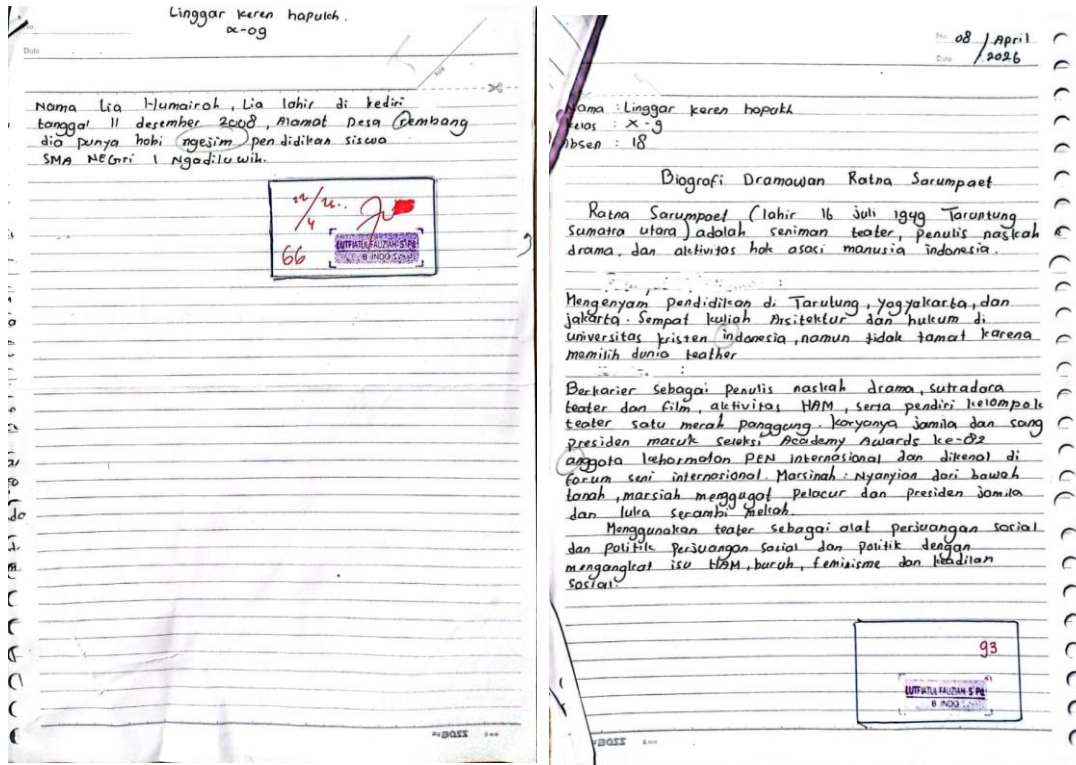 Linggar keren hapukh.
x-09
No.
Date
Nama Lia Humairoh, Lia lahir di kediri
tanggal 11 desember 2008, Alamat Desa rembang
dia punya hobi ngejim pendidikan siswa
SMA NEGri 1 Ngadiluwih.
66
LUTFIATUL FAUZIAH S.Pd
B INDO
BOSS
No. 08 / April
Date / 2026
Nama : Linggar keren hapukh
kelas : X-9
Absen : 18
Biografi Dramawan Ratna Sarumpaet
Ratna Sarumpaet (lahir 16 juli 1949 Taruntung
Sumatra utara) adalah seniman teater, penulis naskah
drama, dan aktivitas hak asasi manusia indonesia.
Mengenyam pendidikan di Tarutung, yogyakarta, dan
jakarta. Sempat kuliah Arsitektur dan hukum di
universitas kristen indonesia, namun tidak tamat karena
memilih dunia teather
Berkarier sebagai penulis naskah drama, sutradara
teater dan film, aktivitas HAM, serta pendiri kelompok
teater satu merah panggung. karyanya jamila dan sang
presiden masuk seleksi Academy Awards ke-82
anggota kehormatan PEN internasional dan dikenal di
forum seni internasional. Marsinah : Nyanyian dari bawah
tanah, marsiah menggugat pelacur dan presiden jamila
dan luka serambi mekah.
Menggunakan teater sebagai alat perjuangan sosial
dan politik perjuangan sosial dan politik dengan
mengangkat isu HAM, buruh, feminisme dan keadilan
sosial.
93
LUTFIATUL FAUZIAH S.Pd
B INDO
BOSS